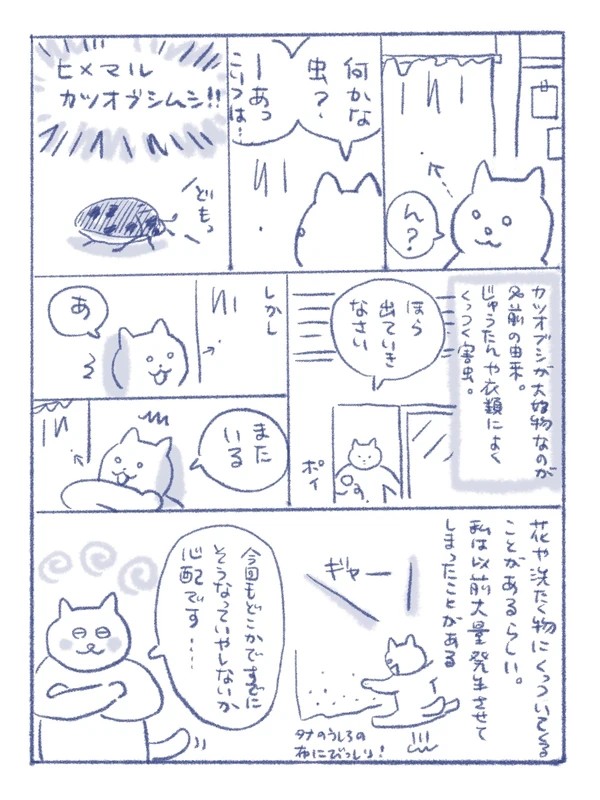 ん?
何かな
虫?
ーあっ
こいつは!
ヒメマル
カツオブシムシ!!
どもっ
カツオブシが大好物なのが
名前の由来。
じゅうたんや衣類によく
くっつく害虫。
ほら
出ていき
なさい
ポイ
しかし
あ
また
いる
花や洗たく物にくっついてくる
ことがあるらしい。
私は以前大量発生させて
しまったことがある
ギャー
タナのうしろの
布にびっしり!
今回もどこかですでに
そうなっていやしないか
心配です……